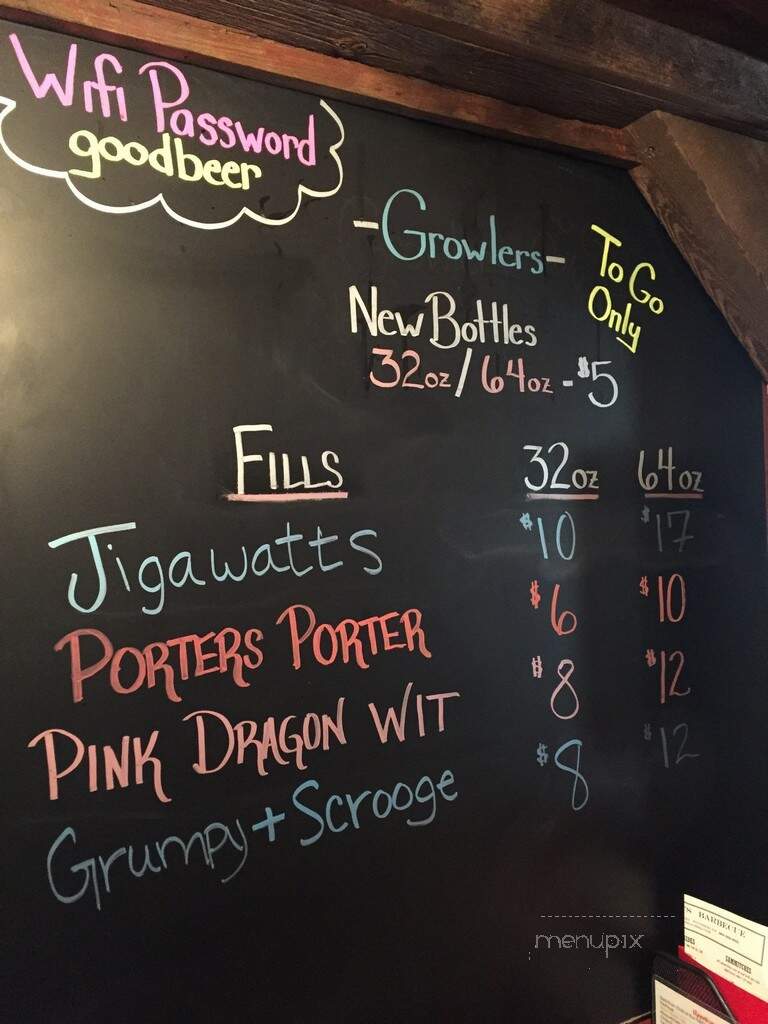 Wifi Password
goodbeer
-Growlers-
To Go
Only
New Bottles
32oz/64oz - $5
Fills 32oz 64oz
Jigawatts $10 $17
Porters Porter $6 $10
Pink Dragon Wit $8 $12
Grumpy + Scrooge $8 $12
S BARBECUE
menupix